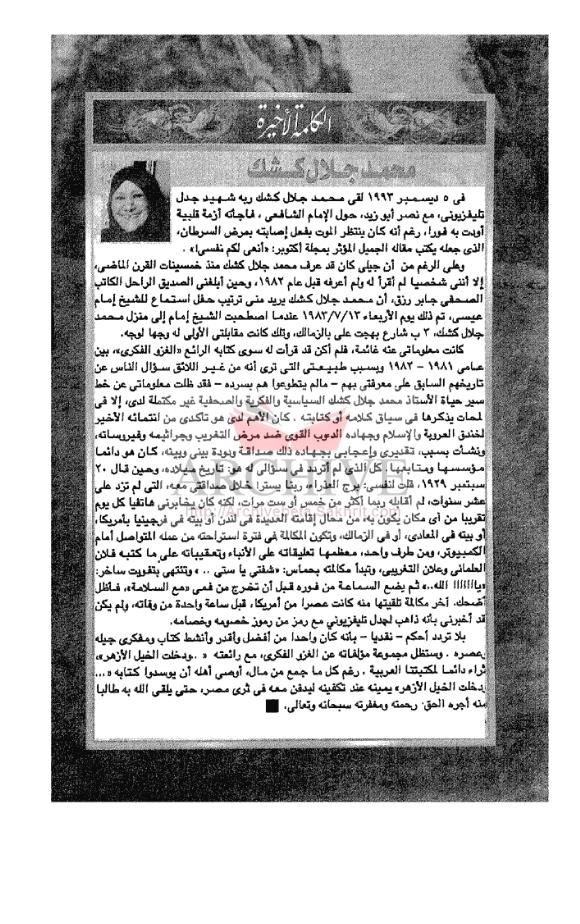 الكلمة الأخيرة
محمد جلال كشك
فى ٥ ديسمبر ١٩٩٣ لقى محمد جلال كشك ربه شهيد جدل
تليفزيونى، مع نصر أبو زيد، حول الإمام الشافعى ، فاجأته أزمة قلبية
أودت به فورا، رغم أنه كان ينتظر الموت بفعل إصابته بمرض السرطان،
الذى جعله يكتب مقاله الجميل المؤثر بمجلة أكتوبر: «أنعى لكم نفسى!» .
وعلى الرغم من أن جيلى كان قد عرف محمد جلال كشك منذ خمسينات القرن الماضى،
إلا أننى شخصيا لم أقرأ له ولم أعرفه قبل عام ١٩٨٢، وحين أبلغنى الصديق الراحل الكاتب
الصحفى جابر رزق، أن محمد جلال كشك يريد منى ترتيب حفل استماع للشيخ إمام
عيسى، تم ذلك يوم الأربعاء ١٩٨٣/٧/١٣ عندما اصطحبت الشيخ إمام إلى منزل محمد
جلال كشك، ٣ ب شارع بهجت على بالزمالك، وتلك كانت مقابلتى الأولى له وجها لوجه.
كانت معلوماتى عنه غائمة، فلم أكن قد قرأت له سوى كتابه الرائع «الغزو الفكرى»، بين
عامى ١٩٨١ – ١٩٨٢ وبسبب طبيعتى التى ترى أنه من غير اللائق سؤال الناس عن
تاريخهم السابق على معرفتى بهم – مالم يتطوعوا هم بسرده – فقد ظلت معلوماتى عن خط
سير حياة الأستاذ محمد جلال كشك السياسية والفكرية والصحفية غير مكتملة لدى، إلا فى
لمحات يذكرها فى سياق كلامه أو كتابته . كان الأهم لدى هو تأكدى من انتمائه الأخير
لخندق العروبة والإسلام وجهاده الدءوب القوى ضد مرض التغريب وجراثيمه وفيروساته،
ونشأت بسبب، تقديرى وإعجابى بجهاده ذلك صداقة ودودة بينى وبينه، كان هو دائما
مؤسسها ومتابعها . كل الذى لم أتردد فى سؤالى له هو: تاريخ ميلاده، وحين قال ٢٠
سبتمبر ١٩٢٩، قلت لنفسى: برج العذراء ربنا يستر! خلال صداقتى معه، التى لم تزد على
عشر سنوات، لم أقابله ربما أكثر من خمس أو ست مرات، لكنه كان يخابرنى هاتفيا كل يوم
تقريبا من أى مكان يكون به، من محال إقامته العديدة فى لندن أو بيته فى فرجينيا بأمريكا،
أو بيته فى المعادى، أو فى الزمالك، وتكون المكالمة فى فترة استراحته من عمله المتواصل أمام
الكمبيوتر، ومن طرف واحد، معظمها تعليقاته على الأنباء وتعقيباته على ما كتبه فلان
العلمانى وعلان التغريبى، وتبدأ مكالمته بحماس: «شفتى يا ستى .. » وتنتهى بتفويت ساخر:
«ياااااا الله..» ثم يضع السماعة من فوره قبل أن تخرج من فمى «مع السلامة»، فأظل
أضحك. آخر مكالمة تلقيتها منه كانت عصرا من أمريكا، قبل ساعة واحدة من وفاته، ولم يكن
قد أخبرنى بأنه ذاهب لجدل تليفزيونى مع رمز من رموز خصومه وخصامه.
بلا تردد أحكم – نقديا – بأنه كان واحدا من أفضل وأقدر وأنشط كتاب ومفكرى جيله
وعصره . وستظل مجموعة مؤلفاته عن الغزو الفكرى، مع رائعته «..ودخلت الخيل الأزهر»،
ثراء دائما لمكتبتنا العربية . رغم كل ما جمع من مال، أوصى أهله أن يوسدوا كتابه «...
ودخلت الخيل الأزهر» يمينه عند تكفينه ليدفن معه فى ثرى مصر، حتى يلقى الله به طالبا
منه أجره الحق: رحمته ومغفرته سبحانه وتعالى.
ARCHIVE
http://Archivebeta.Sakhrit.com